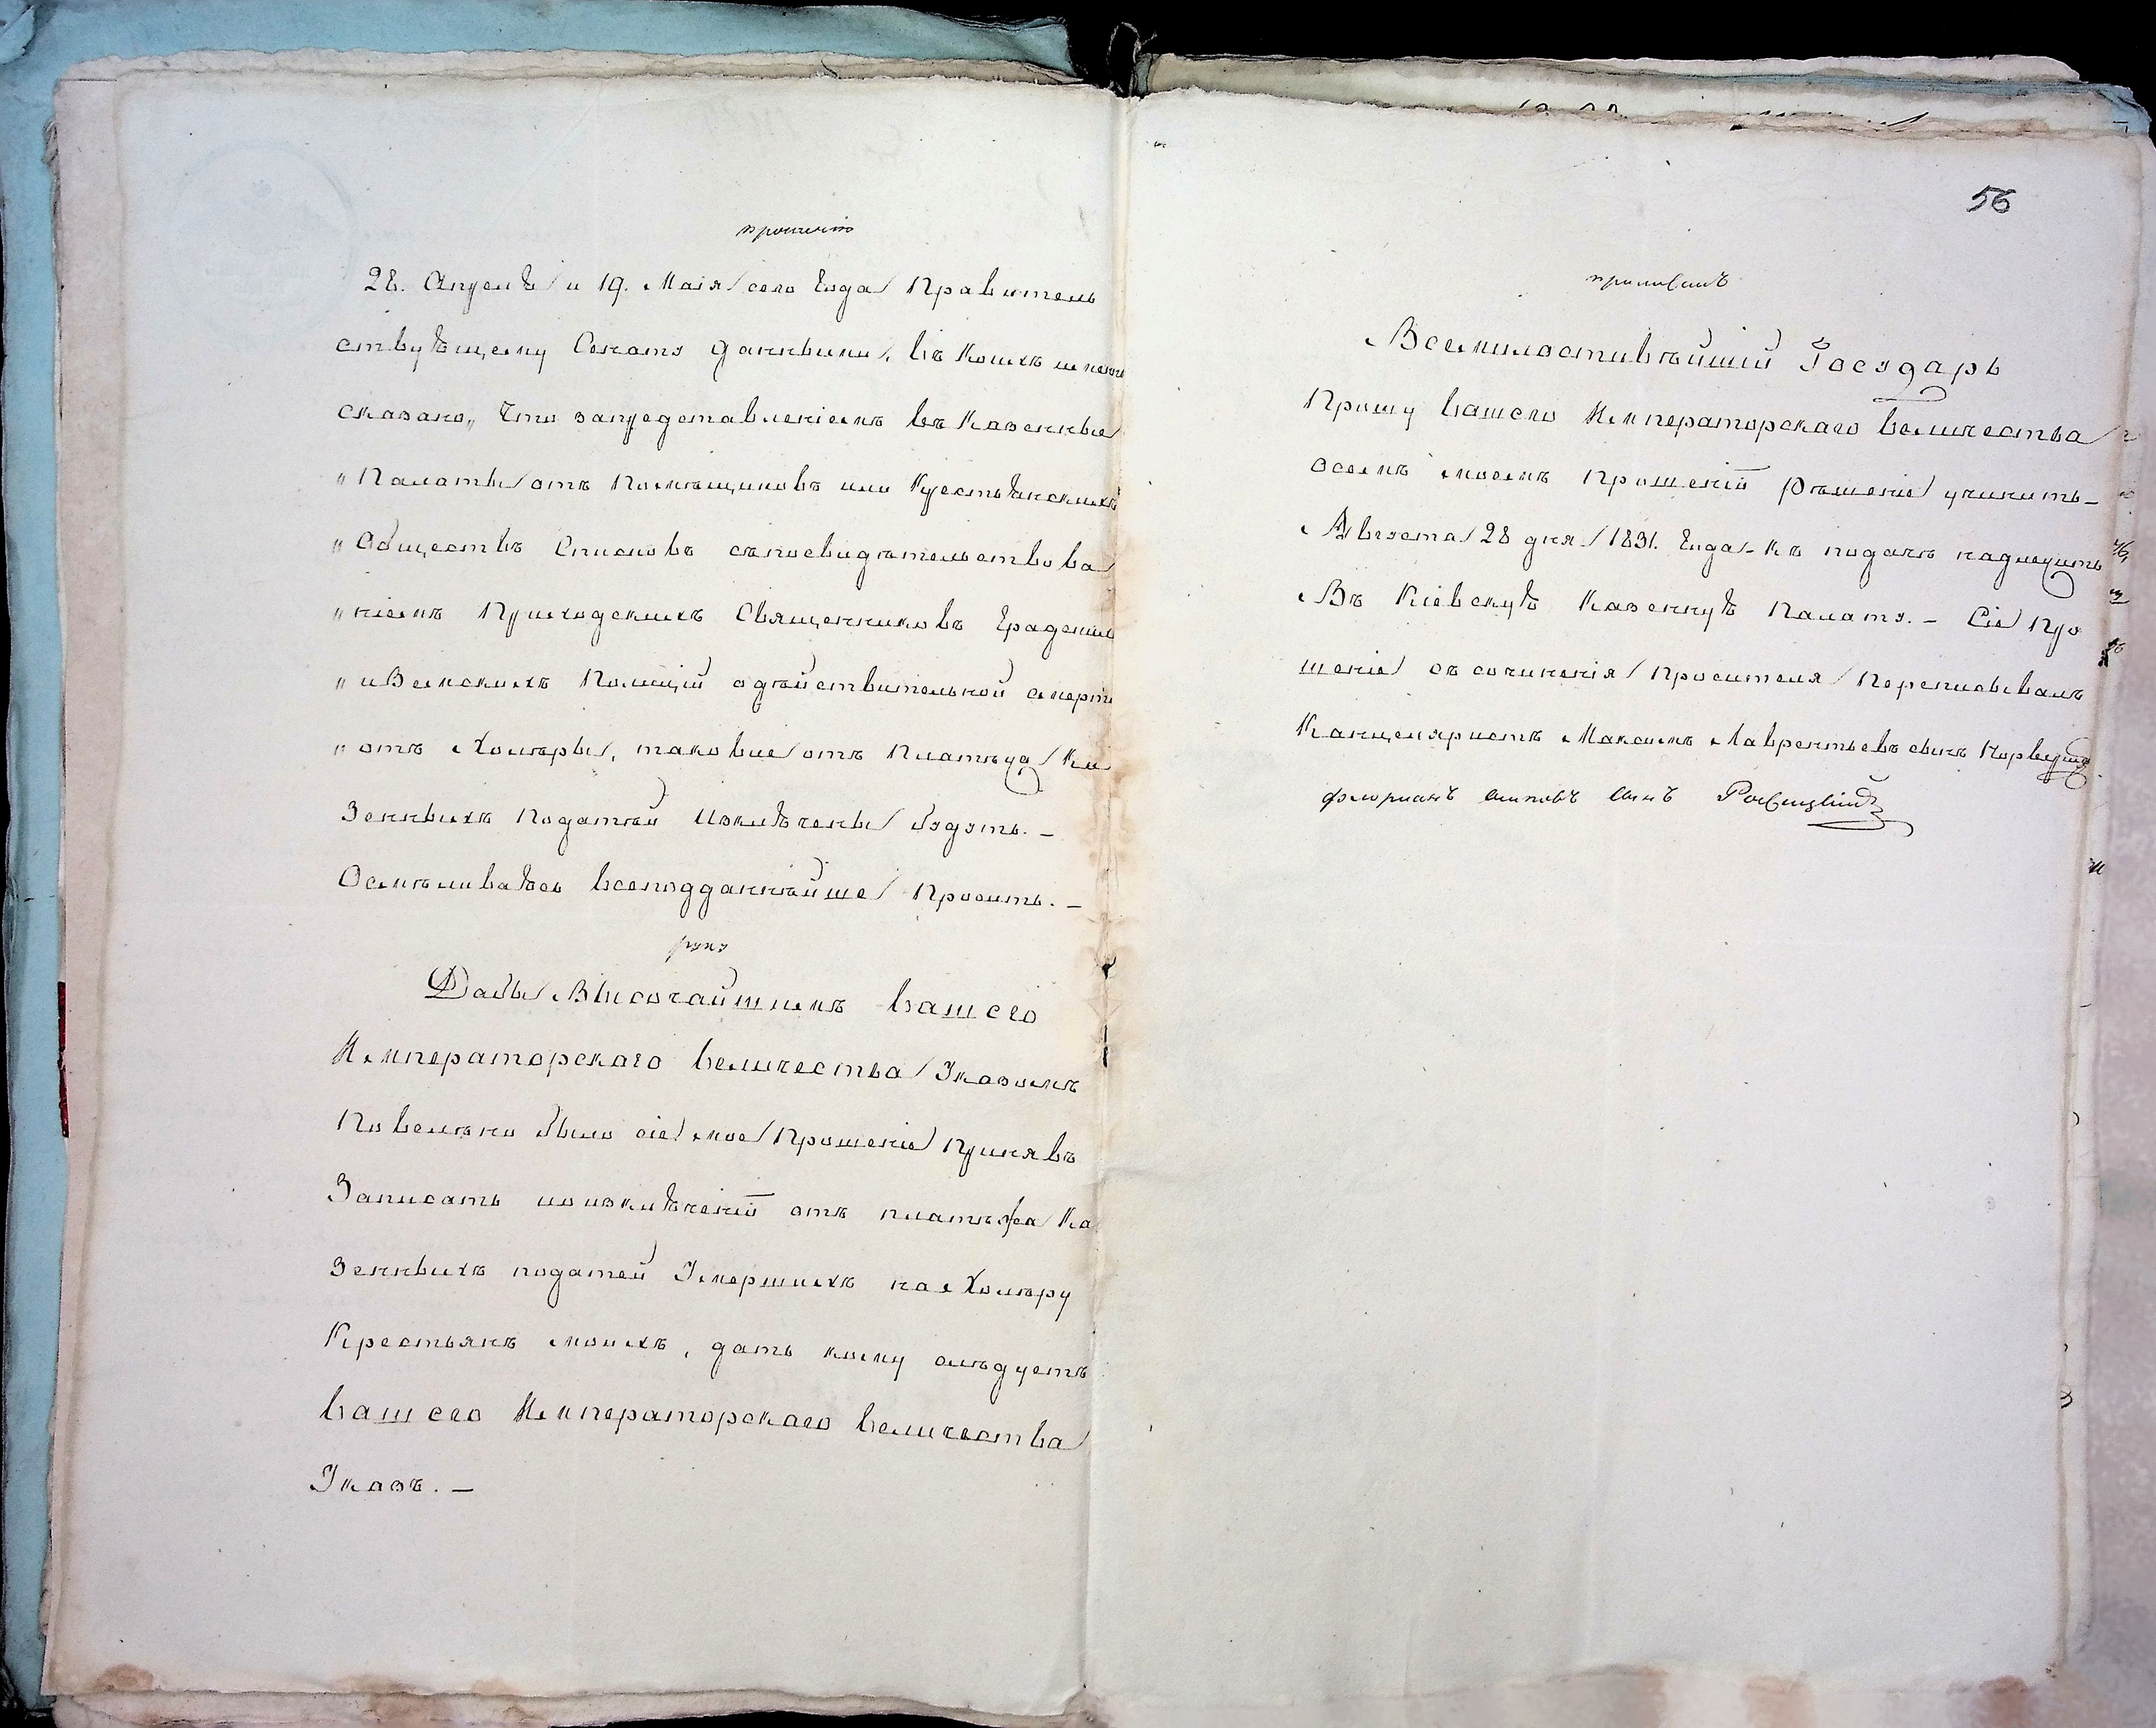 прошенію
28. Апрелѣ и 19. Маія сего года Правитель
ствуѣщему Сенату данными, въ коихъ
сказано„ Что запредставленіемъ въ Казенные
„ Палаты отъ Помѣщиковъ или Крестьѣнскихъ
„ Обществъ Списковъ съпосвидѣтельствова
„ ніемъ Приходскихъ Священниковъ Градским
„ иЗемскихъ Полицій одѣйствительной смерти
„ отъ Холѣры, таковые отъ Платѣжа Ка
Зенныхъ Податѣй Изключены будутъ. —
Осмѣливаѣсь всеподданнѣйше Просить. —
руку
Дабы Высочайшимъ Вашего
Императорскаго Величества Указомъ
Повелѣно было сіе мое Прошеніе Принявъ
Записать и изклѣченіи отъ платѣжа Ка
Зенныхъ податей Умершихъ на Холѣру
Крестьянъ моихъ, дать кому слѣдуетъ
Вашего Императорскаго Величества
Указъ. —
56
приложилъ
Всемилостивѣйшій Государь
Прошу Вашего Императорскаго Величества
осемъ моемъ Прошеніи рѣшеніе учинить —
Августа 28 дня 1831. Года — къ подачѣ надлежитъ
Въ Кіевскуѣ Казеннуѣ Палату. — Сіе Про
шеніе съ сочиненія Просителя Переписывалъ
Канцеляристъ Максимъ Лаврентьевъ сынъ
Флоріанъ сынъ